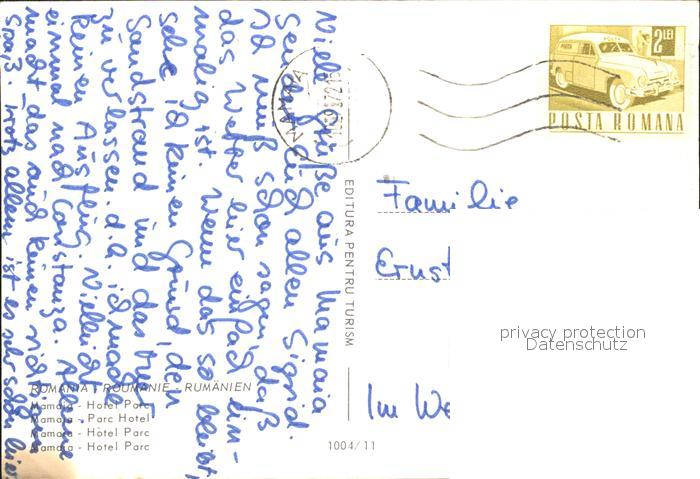 Viele Grüße aus Mamaia
sendet Euch allen Sigrid.
Ich muß schon sagen, daß
das Wetter hier einfach ein-
malig ist. Wenn das so bleibt,
sehe ich keinen Grund, den
Sandstrand und das Meer
zu verlassen, d.h. ich mache
keinen Ausflug. Vielleicht
einmal nach Constanza. Alleine
macht das auch keinen richtigen
Spaß. Trotz allem ist es sehr schön hier
MAMAIA
2 LEI
POSTA
POSTA ROMANA
EDITURA PENTRU TURISM
Familie
Ernst
Im We
privacy protection
Datenschutz
ROMANIA - ROUMANIE - RUMÄNIEN
Mamaia - Hotel Parc
Mamaia - Parc Hotel
Mamaia - Hôtel Parc
Mamaia - Hotel Parc
1004/11